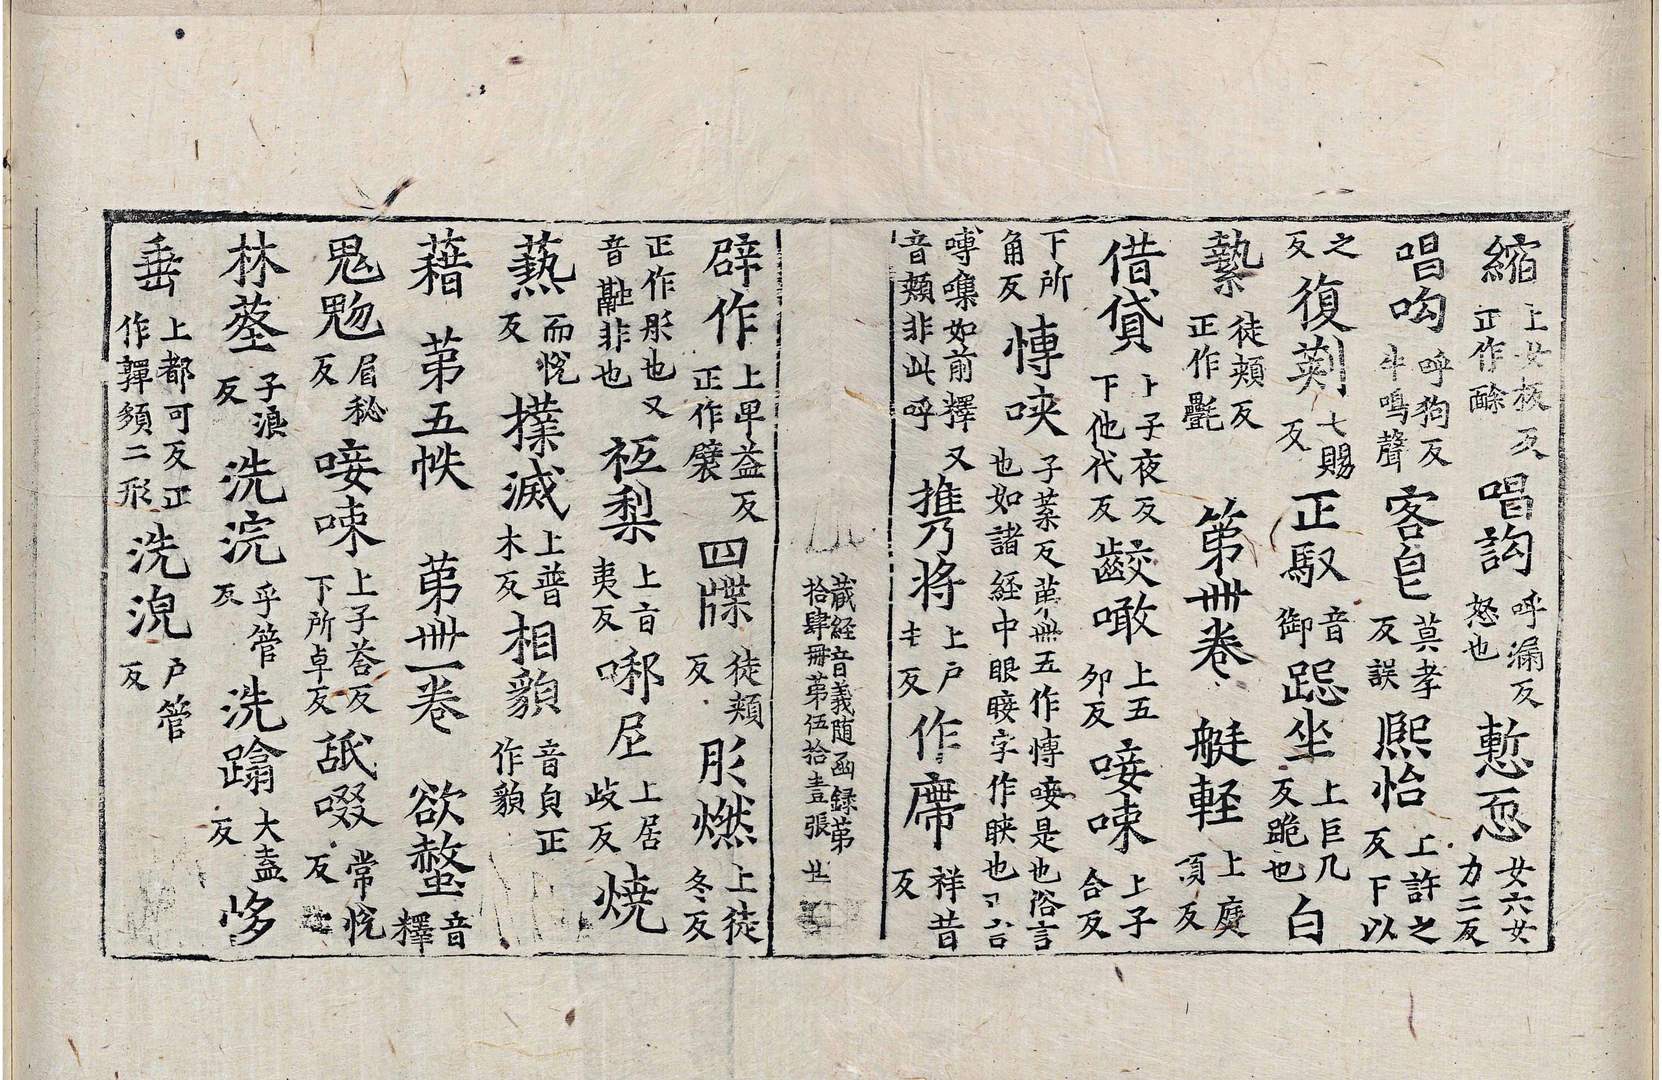 縮上女板反正作酴唱訽呼漏反怒也慙恧女六女力二反
唱呴呼狗反牛鳴聲客皀莫孝反誤熈怡上許之反下以
之反復𠞰七賜反正馭音御跽坐上巨几反跪也白
縶徒頰反正作㲲第卌卷艇軽上庭頂反
借貸上子夜反下他代反齩噉上五卯反唼㖓上子合反
下所角反慱唊子葉反苐卌五作慱唼是也俗言也如諸経中眼睫字作䀹也
嗙㗱如前釋又音頰非此呼㩗将上戶圭反作席祥昔反
蔵経音義随函録第拾肆冊第伍拾壹張
辟作上卑益反正作襞四牒徒頰反肜燃上徒冬反
正作肜也又音非也衹梨上音夷反哪𡰱上居歧反焼
爇而恱反撲滅上普木反相䫉音皃正作䫉
藉苐五帙苐卌一卷欲螫音釋
鬼魅眉秘反唼㖓上子荅反下所卓反舐啜常恱反
林藂子浪反洗浣乎管反洗蹹大盍反哆
埀上都可反正作嚲䫂二形洗浼戶管反